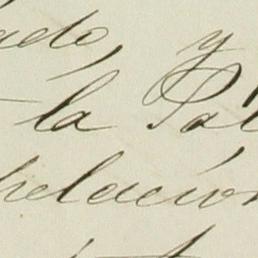 ado, y
la Pal
pelación